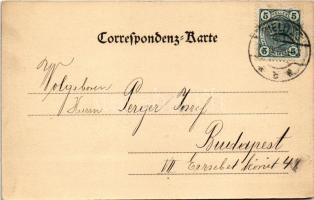 Correspondenz-Karte
5 5
5 5
Wolgeboren
Herrn Perger Josef
Budapest
VII Erzsebet körut 4